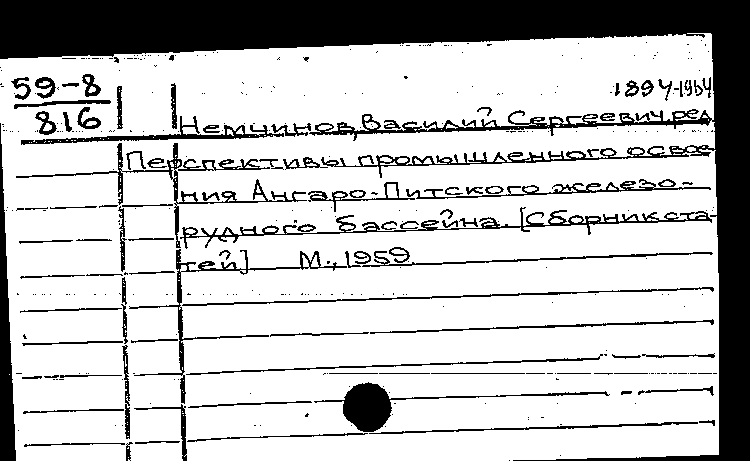 59-8
816
1894-1964
Немчинов, Василий Сергеевич, ред.
Перспективы промышленного освое-
ния Ангаро-Питского железо-
рудного бассейна. [Сборник ста-
тей] М., 1959